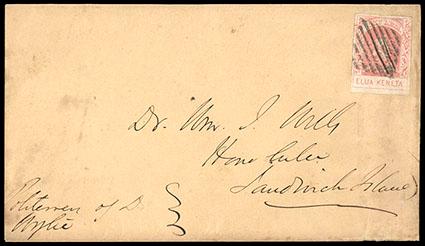 ELUA KENETA
Dr. Wm. J. Wills
Honolulu
Sandwich Islands
Politeness of D.
Wylie